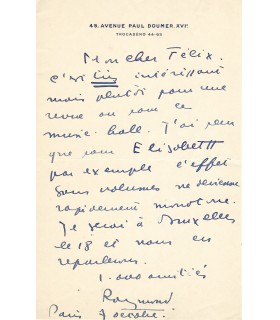 48, AVENUE PAUL DOUMER. XVIᵉ
TROCADÉRO 44-60
Mon cher Félix.
c'est très intéressant
mais plutôt pour une
revue ou pour le
music-hall. J'ai peur
que pour Elisabeth
par exemple l'effet
sans volumes ne devienne
rapidement monotone.
Je serai à Bruxelles
le 18 et nous en
reparlerons.
1.000 amitiés
Raymond
Paris 7 octobre.